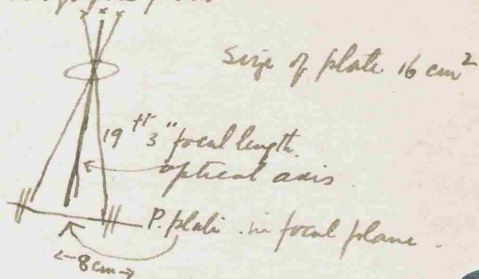 Size of plate 16 cm²
19 ft 3" focal length.
optical axis
P. plate. in focal plane.
8 cm